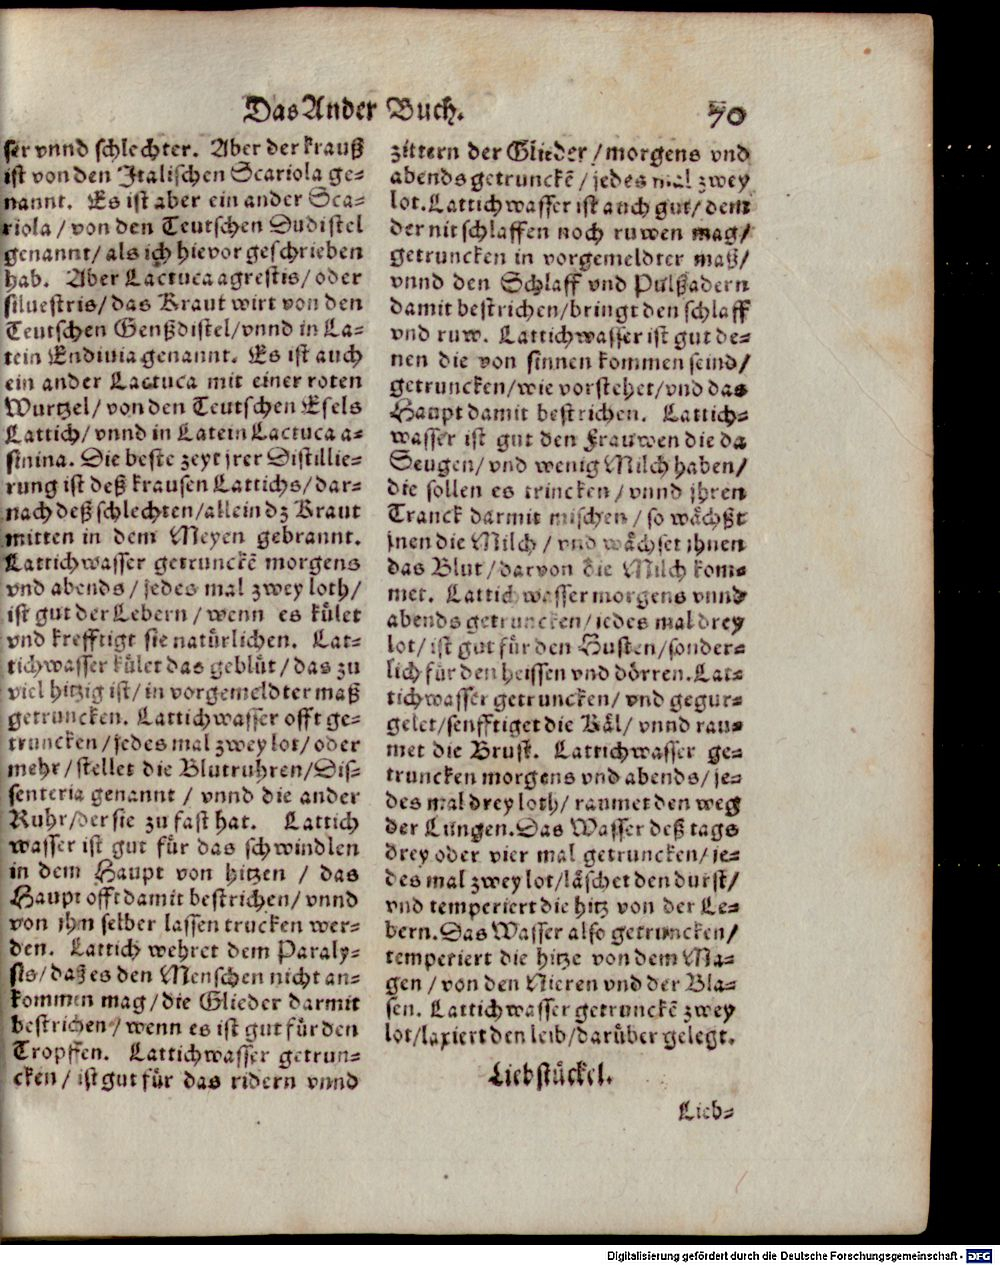 Das Ander Buch. 70
ser vnnd schlechter. Aber der krauß
ist von den Italischen Scariola ge-
nannt. Es ist aber ein ander Sca-
riola / von den Teutschen Dudistel
genannt / als ich hievor geschrieben
hab. Aber Lactuca agrestis / oder
siluestris / das Kraut wirt von den
Teutschen Genßdistel / vnnd in La-
tein Endiuia genannt. Es ist auch
ein ander Lactuca mit einer roten
Wurtzel / von den Teutschen Esels
Lattich / vnnd in Latein Lactuca a-
sinina. Die beste zeyt jrer Distillie-
rung ist deß krausen Lattichs / dar-
nach deß schlechten / allein dz Kraut
mitten in dem Meyen gebrannt.
Lattichwasser getrunckẽ morgens
vnd abends / jedes mal zwey loth /
ist gut der Lebern / wenn es kület
vnd krefftigt sie natürlichen. Lat-
tichwasser kület das geblüt / das zu
viel hitzig ist / in vorgemeldter maß
getruncken. Lattichwasser offt ge-
truncken / jedes mal zwey lot / oder
mehr / stellet die Blutruhren / Dis-
senteria genannt / vnnd die ander
Ruhr / der sie zu fast hat. Lattich
wasser ist gut für das schwindlen
in dem Haupt von hitzen / das
Haupt offt damit bestrichen / vnnd
von jhm selber lassen trucken wer-
den. Lattich wehret dem Paraly-
sis / daß es den Menschen nicht an-
kommen mag / die Glieder darmit
bestrichen / wenn es ist gut für den
Tropffen. Lattichwasser getrun-
cken / ist gut für das ridern vnnd
zittern der Glieder / morgens vnd
abends getrunckẽ / jedes mal zwey
lot. Lattichwasser ist auch gut / dem
der nit schlaffen noch ruwen mag /
getruncken in vorgemeldter maß /
vnnd den Schlaff vnd Pulßadern
damit bestrichen / bringt den schlaff
vnd ruw. Lattichwasser ist gut de-
nen die von sinnen kommen seind /
getruncken / wie vorstehet / vnd das
Haupt damit bestrichen. Lattich-
wasser ist gut den Frauwen die da
Seugen / vnd wenig Milch haben /
die sollen es trincken / vnnd jhren
Tranck darmit mischen / so wächßt
jnen die Milch / vnd wächset jhnen
das Blut / darvon die Milch kom-
met. Lattichwasser morgens vnnd
abends getruncken / jedes mal drey
lot / ist gut für den Husten / sonder-
lich für den heissen vnd dörren. Lat-
tichwasser getruncken / vnd gegur-
gelet / senfftiget die Käl / vnnd rau-
met die Brust. Lattichwasser ge-
truncken morgens vnd abends / je-
des mal drey loth / raumet den weg
der Lungen. Das Wasser deß tags
drey oder vier mal getruncken / je-
des mal zwey lot / läschet den durst /
vnd temperiert die hitz von der Le-
bern. Das Wasser also getruncken /
temperiert die hitze von dem Ma-
gen / von den Nieren vnd der Bla-
sen. Lattichwasser getrunckẽ zwey
lot / laxiert den leib / darüber gelegt.
Liebstückel.
Lieb-
Digitalisierung gefördert durch die Deutsche Forschungsgemeinschaft - DFG